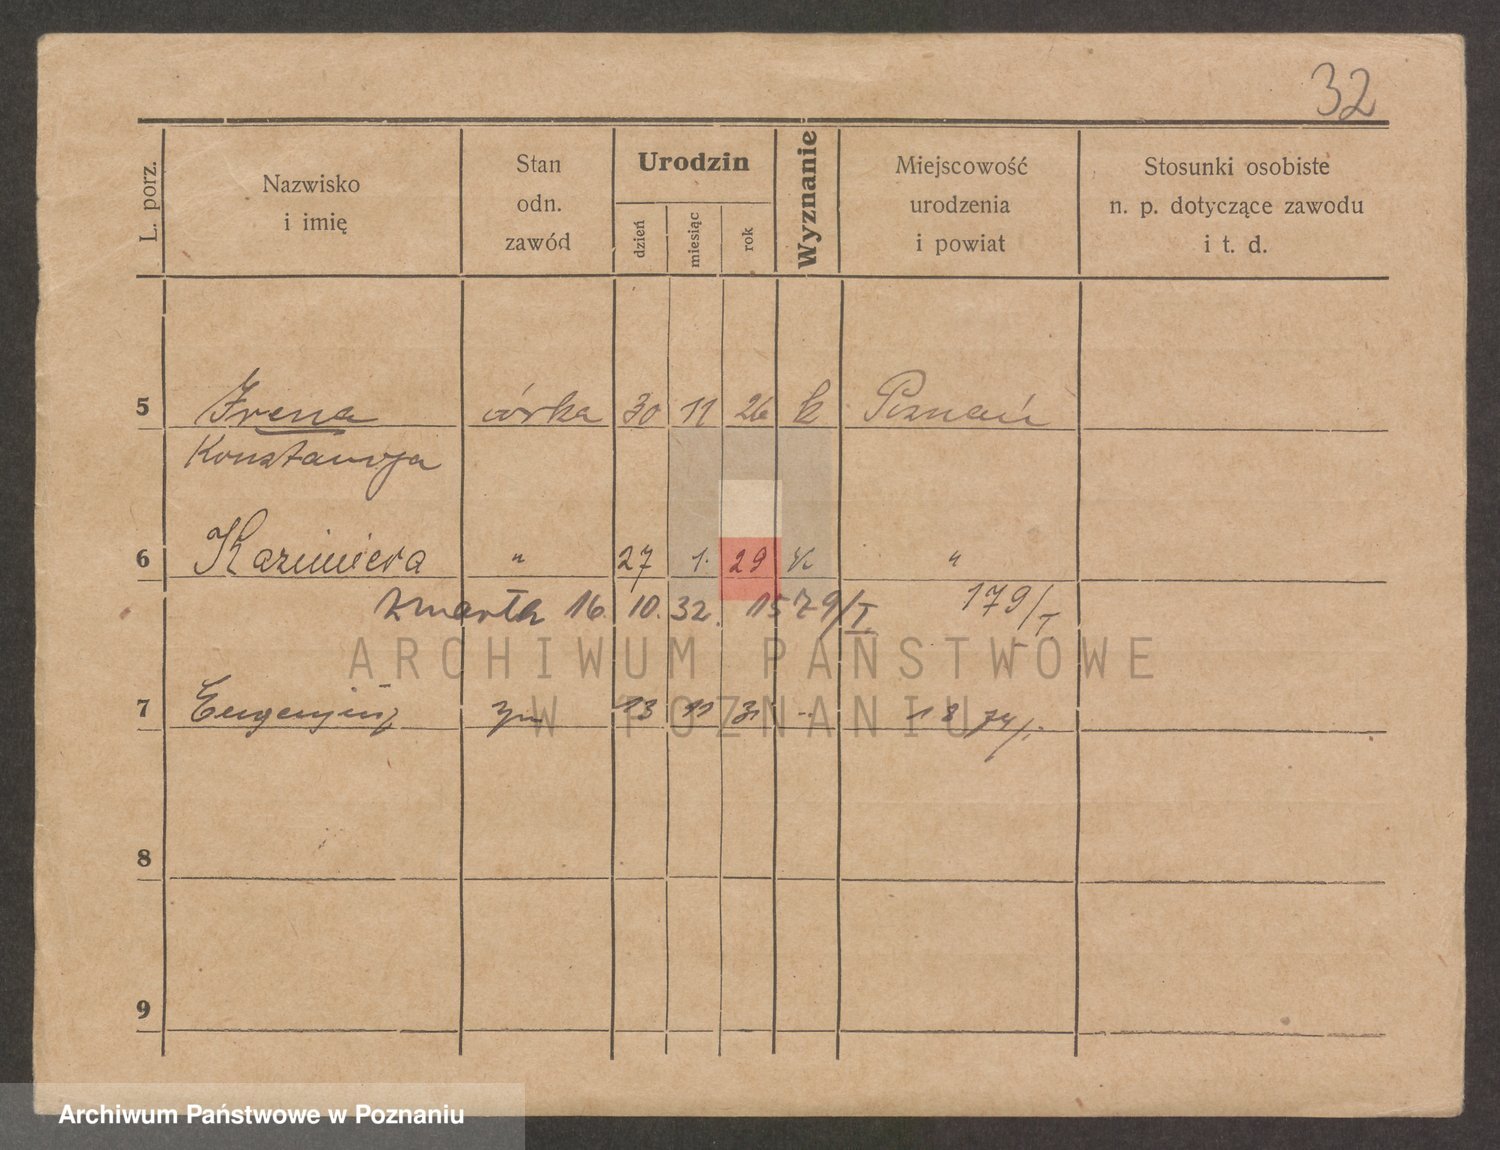 32
L. porz.
Nazwisko
i imię
Stan
odn.
zawód
Urodzin
dzień
miesiąc
rok
Wyznanie
Miejscowość
urodzenia
i powiat
Stosunki osobiste
n. p. dotyczące zawodu
i t. d.
5 Irena córka 30 11 26 k Poznań
Konstancja
6 Kazimiera " 27 1. 29 K "
zmarła 16. 10. 32. 1579/I 179/I
ARCHIWUM PAŃSTWOWE
7 Eugenjusz syn 13 11 31 - 1874/I.
W POZNANIU
8
9
Archiwum Państwowe w Poznaniu